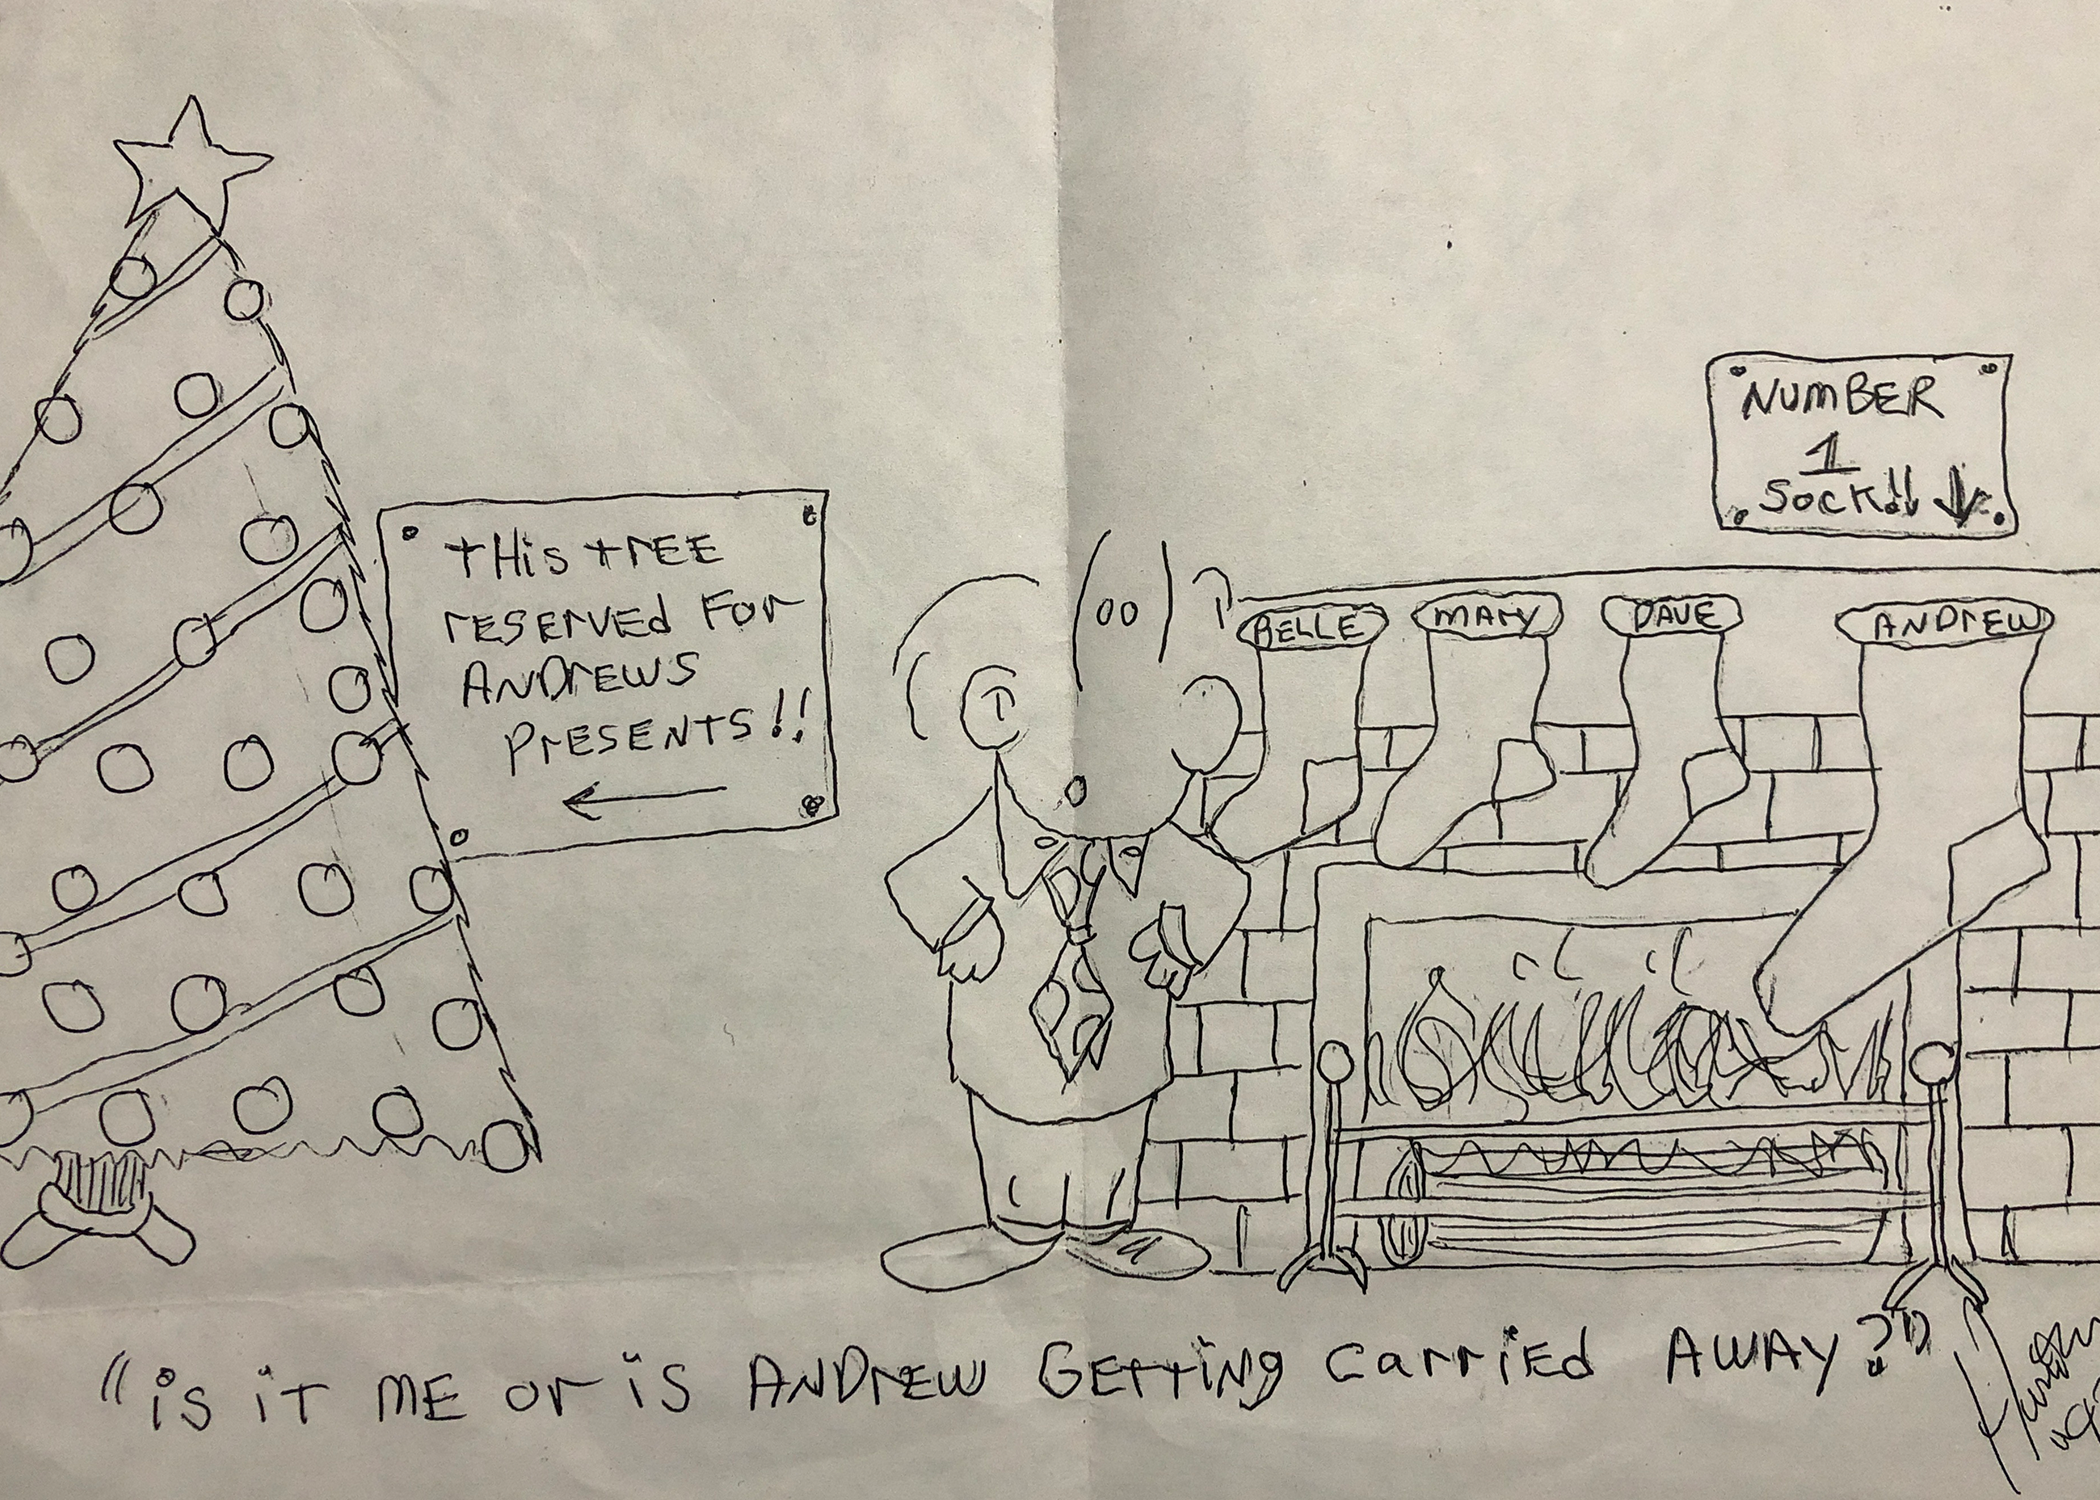 tHis trEE
rESErVEd For
ANDrEWS
PrESENtS!!
NumBER
1
Sock!!
BELLE
MARY
DAVE
ANDrEW
"is iT ME or is ANDrEW GEtting carriEd AWAY?"